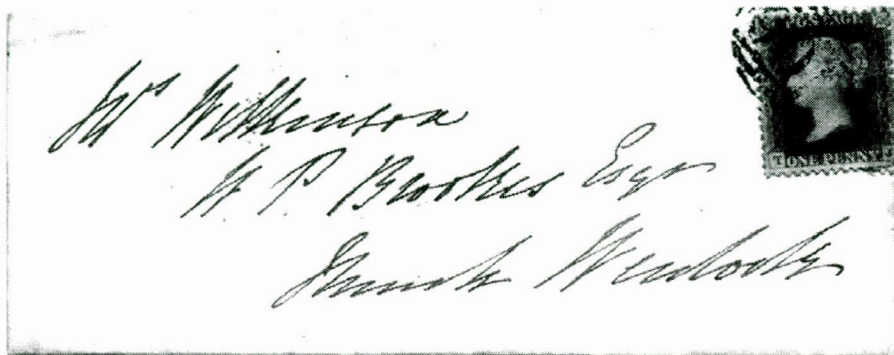 POSTAGE
ONE PENNY
Mrs Wilkinson
W P Brookes Esqr
Much Wenlock